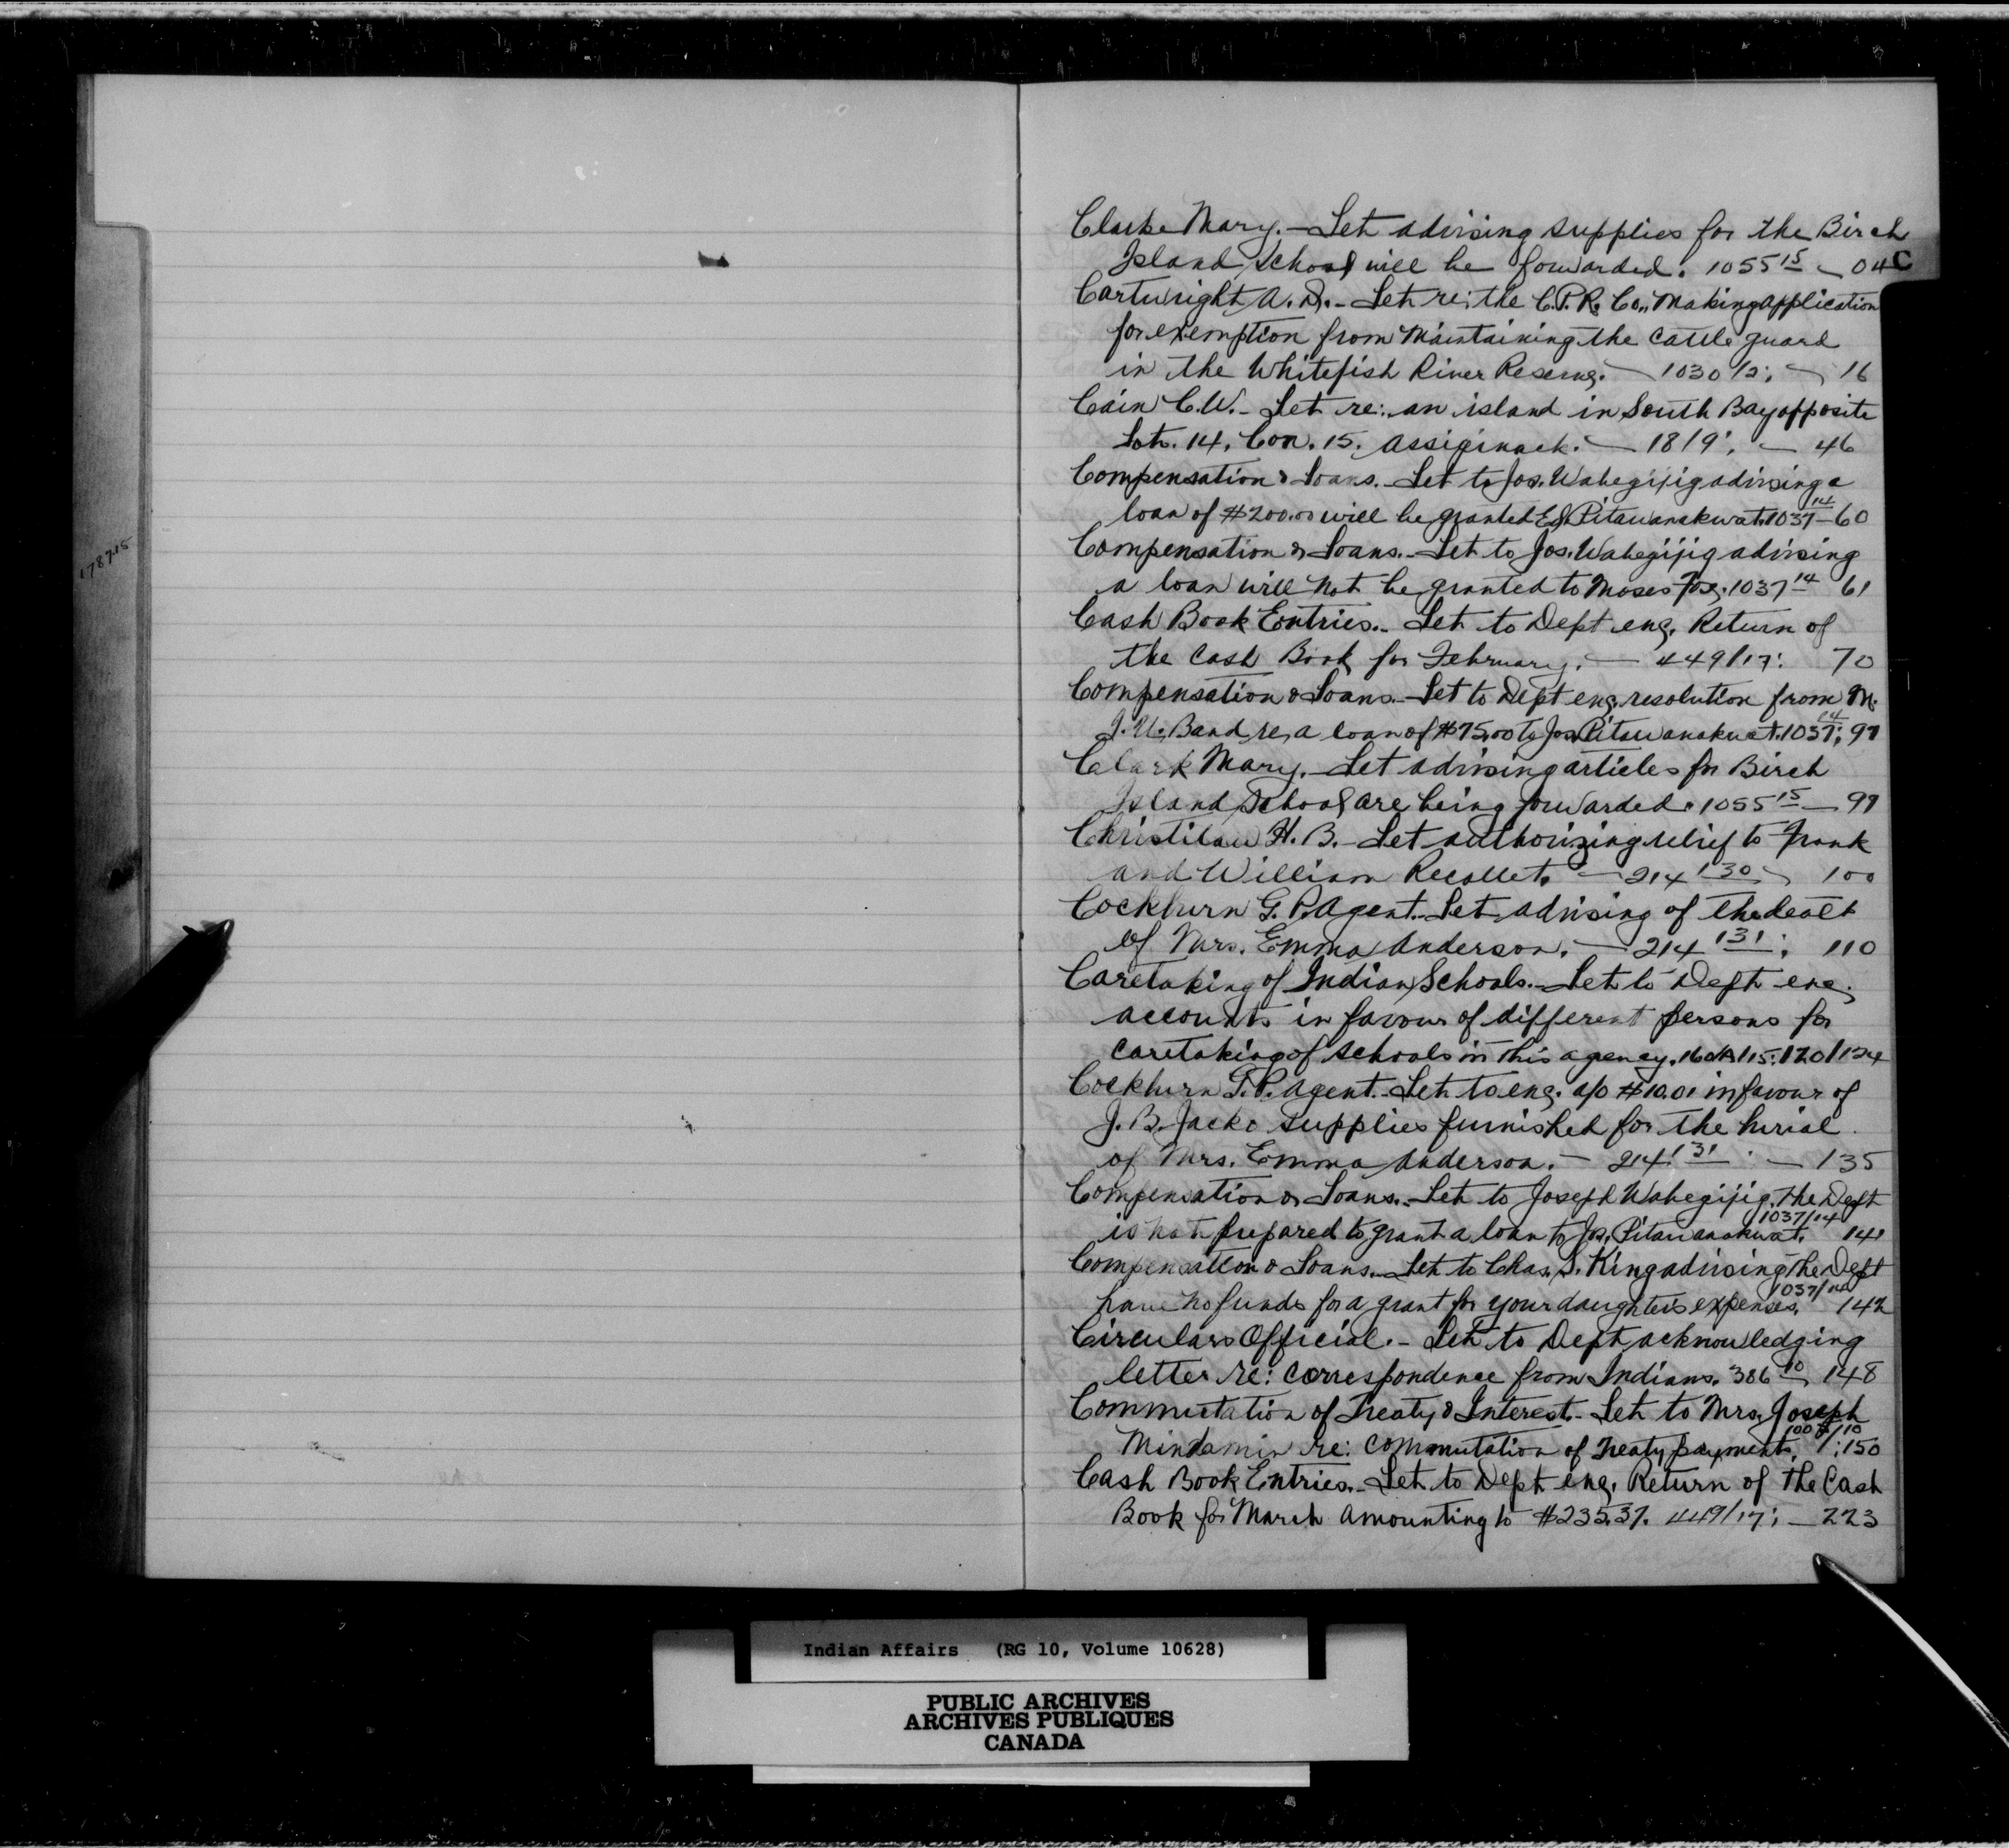 Clarke Mary. - Let advising supplies for the Birch
Island School will be forwarded. 1055 15 - 04
C
Cartwright A. D. - Let re: the C.P.R. Co., Making application
for exemption from Maintaining the Cattle guard
in the Whitefish River Reserve. - 1030/2; - 16
Cain C.W. - Let re: an island in South Bay opposite
Lot. 14, Con. 15. Assiginack. - 18/9; - 46
Compensation & Loans. - Let to Jos. Wahegijig advising a
loan of $200.00 will be granted Pitawanakwat. 1037 14 - 60
Compensation & Loans. - Let to Jos. Wahegijig advising
a loan will not be granted to Moses 1037 14 61
Cash Book Entries. - Let to Dept enc. Return of
the Cash Book for February. - 449/17: 70
Compensation & Loans. - Let to Dept enc. resolution from M.
I. U. Band, re, a loan of $75.00 to Jos. Pitawanakwat. 1037 14; 97
Clark Mary. - Let advising articles for Birch
Island School are being forwarded. 1055 15 - 99
H. B. - Let authorizing relief to Frank
and William Recollet. - 214 130; 100
Cockburn G. P. Agent. - Let advising of the death
of Mrs. Emma Anderson. - 214 131; 110
Caretaking of Indian Schools. - Let to Dept enc.
accounts in favour of different persons for
caretaking of schools in this agency. 160A/15: 120/124
Cockburn G. P. Agent. - Let to enc. a/c $10.01 in favour of
J. B. Jacko supplies furnished for the burial
of Mrs. Emma Anderson. - 214 131 - 135
Compensation & Loans. - Let to Joseph Wahegijig, the Dept
is not prepared to grant a loan to Jos. Pitawanakwat. 1037/14 141
Compensation & Loans. - Let to Chas. S. King advising the Dept
have no funds for a grant for your daughter's expenses. 1037/14 142
Circulars Official. - Let to Dept acknowledging
letter re: correspondence from Indians. 386 10 148
Commutation of Treaty & Interest. - Let to Mrs. Joseph
Mindamin re: commutation of Treaty payments. 1007/10; 150
Cash Book Entries. - Let to Dept enc. Return of the Cash
Book for March amounting to $235.37. 449/17; - 223
Indian Affairs (RG 10, Volume 10628)
PUBLIC ARCHIVES
ARCHIVES PUBLIQUES
CANADA